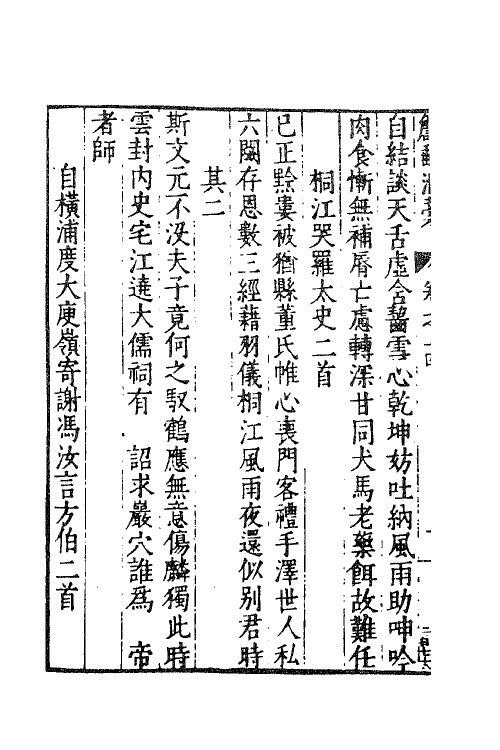 自結談天舌虛含齧雪心乾坤妨吐納風雨助呻吟
肉食慚無補脣亡慮轉深甘同犬馬老藥餌故難任
桐江哭羅太史二首
已正黔婁被猶縣董氏帷心喪門客禮手澤世人私
六闋存恩數三經藉羽儀桐江風雨夜還似别君時
其二
斯文元不没夫子竟何之馭鶴應無意傷麟獨此時
雲封内史宅江遶大儒祠有 詔求巖穴誰爲 帝
者師
自橫浦度大庾嶺寄謝馮汝言方伯二首